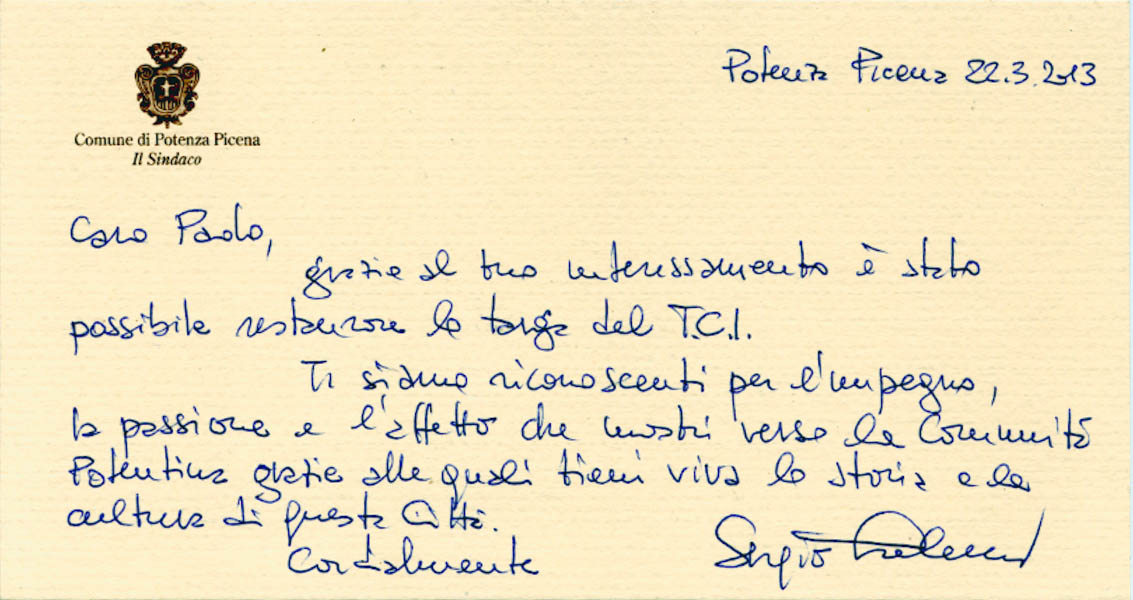 Potenza Picena 22.3.2013
Comune di Potenza Picena
Il Sindaco
Caro Paolo,
grazie al tuo interessamento è stato
possibile restaurare la targa del T.C.I.
Ti siamo riconoscenti per l'impegno,
la passione e l'affetto che mostri verso la Comunità
Potentina grazie alle quali tieni viva la storia e la
cultura di questa Città.
Cordialmente
Sergio